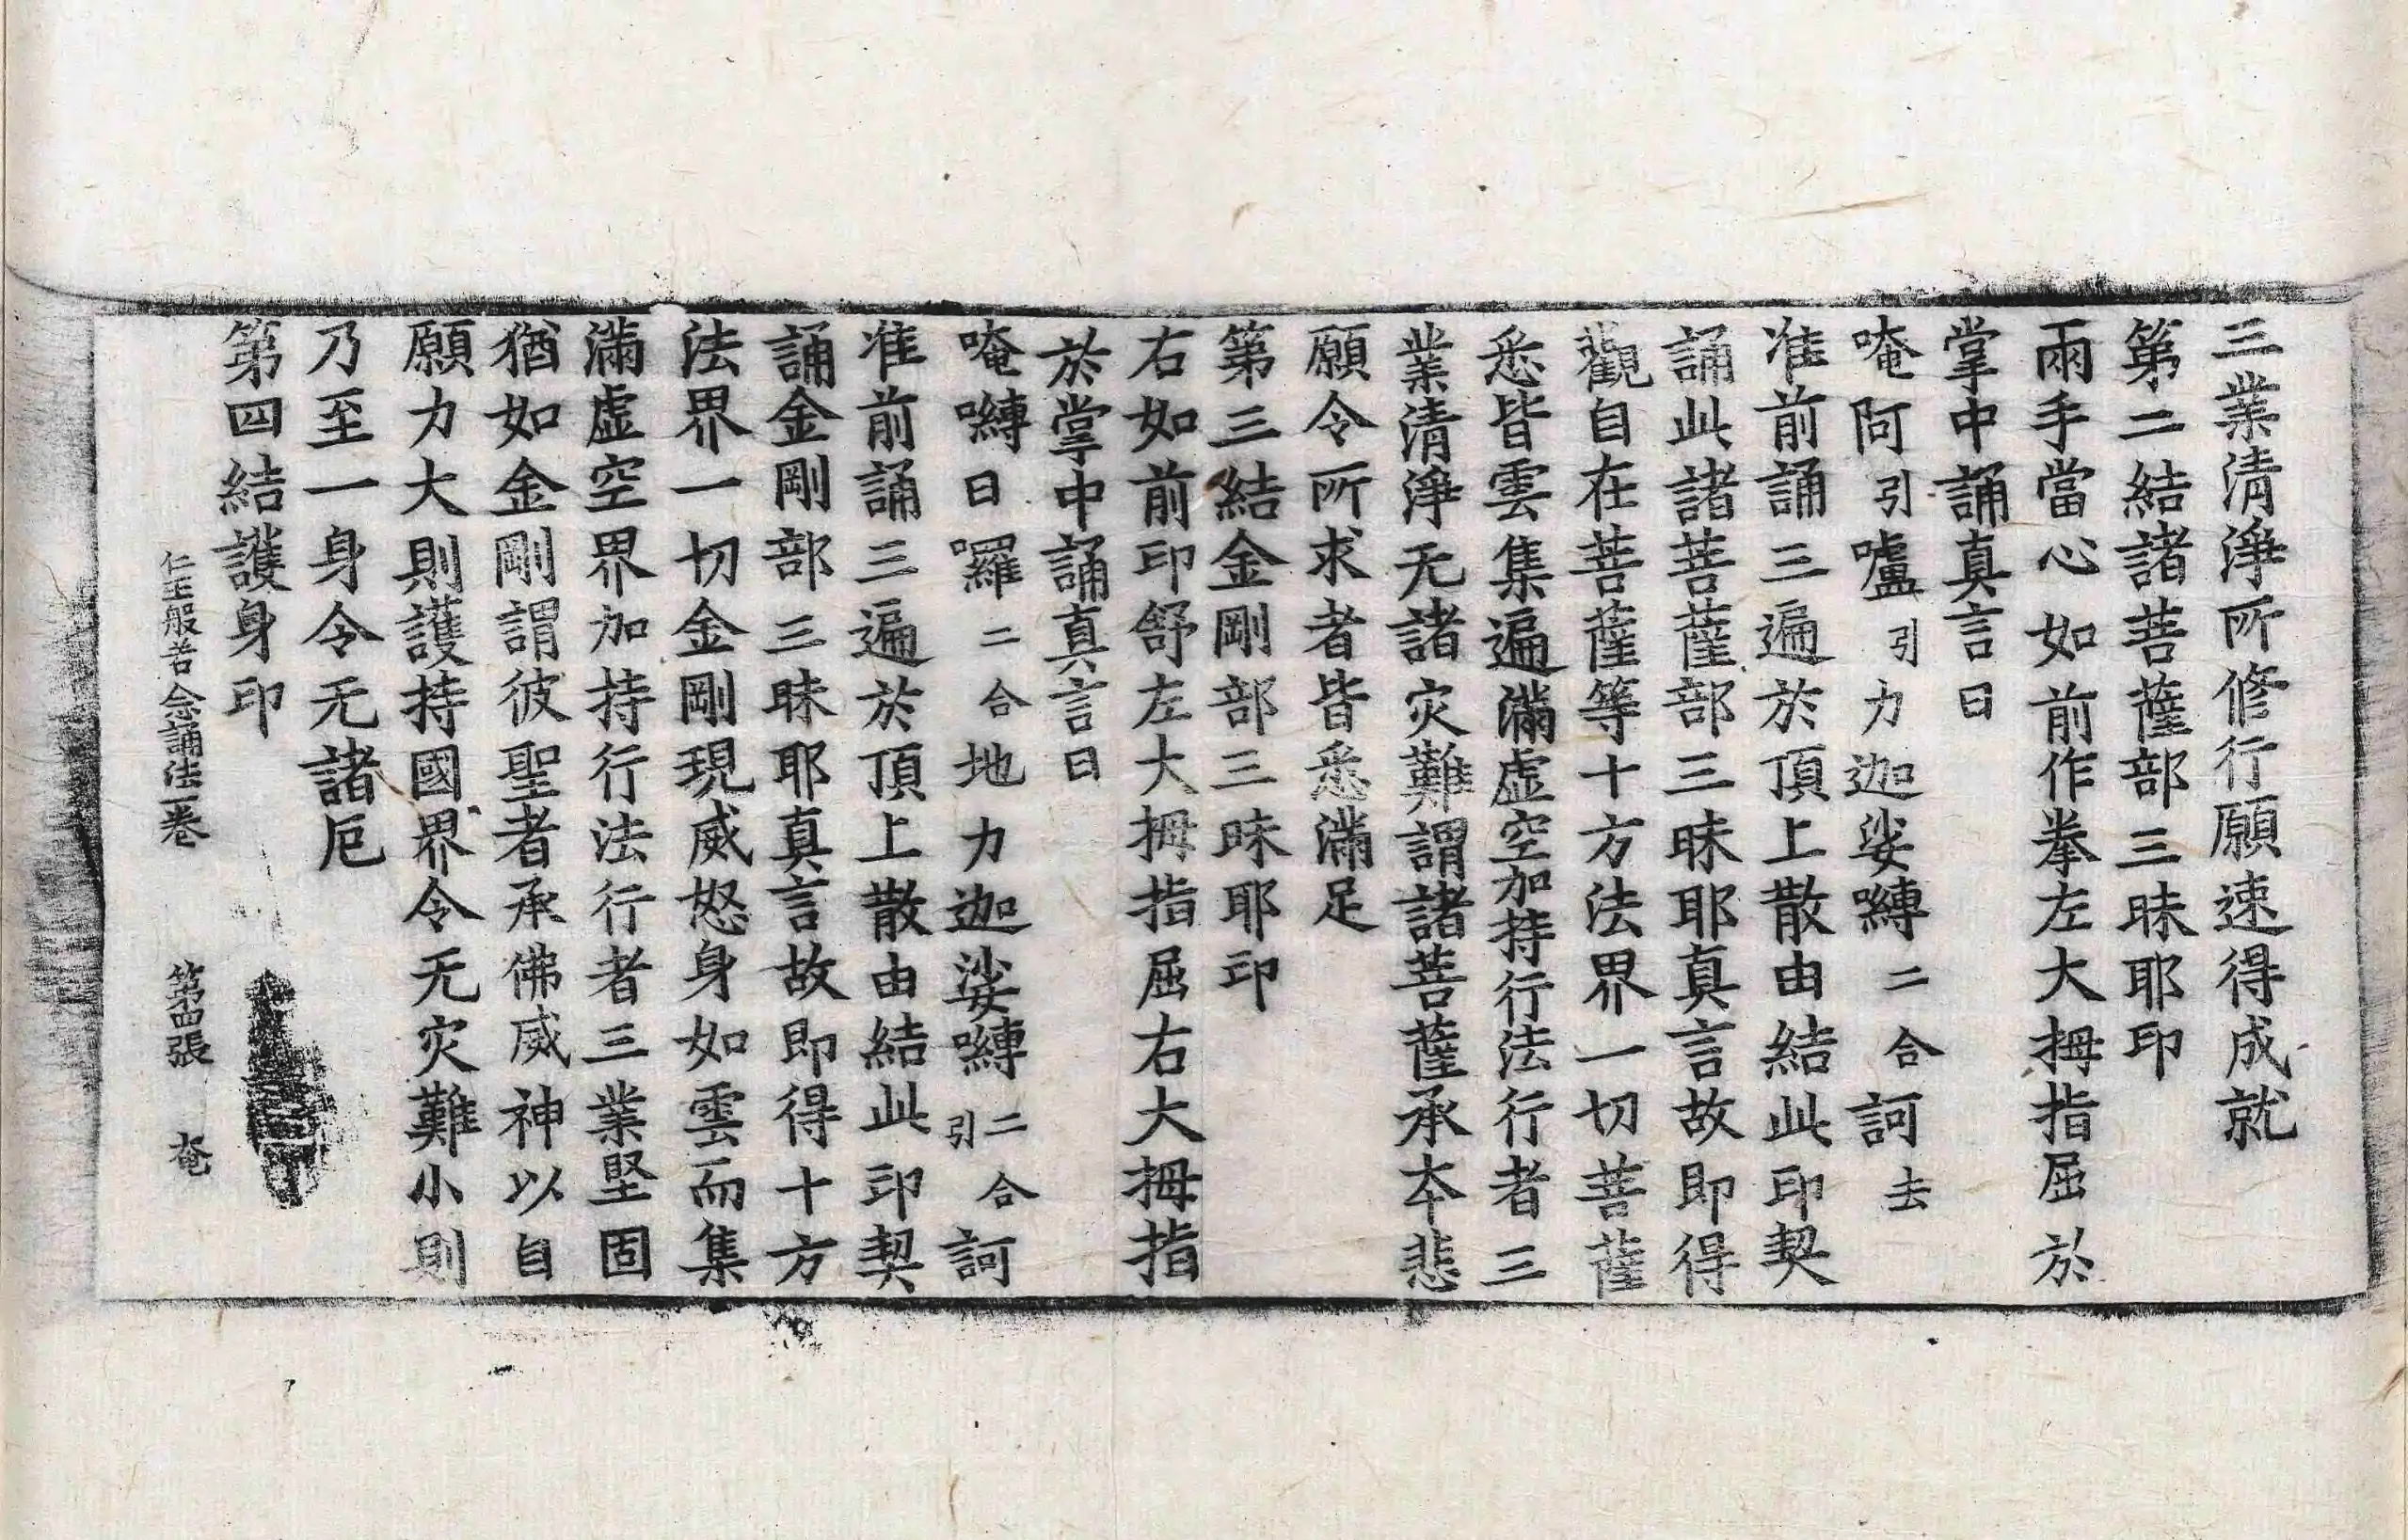 三業清淨所修行願速得成就
第二結諸菩薩部三昧耶印
兩手當心如前作拳左大拇指屈於
掌中誦真言曰
唵阿引嚧引力迦娑嚩二合訶去
准前誦三遍於頂上散由結此印契
誦此諸菩薩部三昧耶真言故即得
觀自在菩薩等十方法界一切菩薩
悉皆雲集遍滿虛空加持行法行者三
業清淨无諸灾難謂諸菩薩承本悲
願令所求者皆悉滿足
第三結金剛部三昧耶印
右如前印舒左大拇指屈右大拇指
於掌中誦真言曰
唵嚩日囉二合地力迦娑嚩二合引訶
准前誦三遍於頂上散由結此印契
誦金剛部三昧耶真言故即得十方
法界一切金剛現威怒身如雲而集
滿虛空界加持行法行者三業堅固
猶如金剛謂彼聖者承佛威神以自
願力大則護持國界令无灾難小則
乃至一身令无諸厄
第四結護身印
仁王般若念誦法一卷 第四張 奄